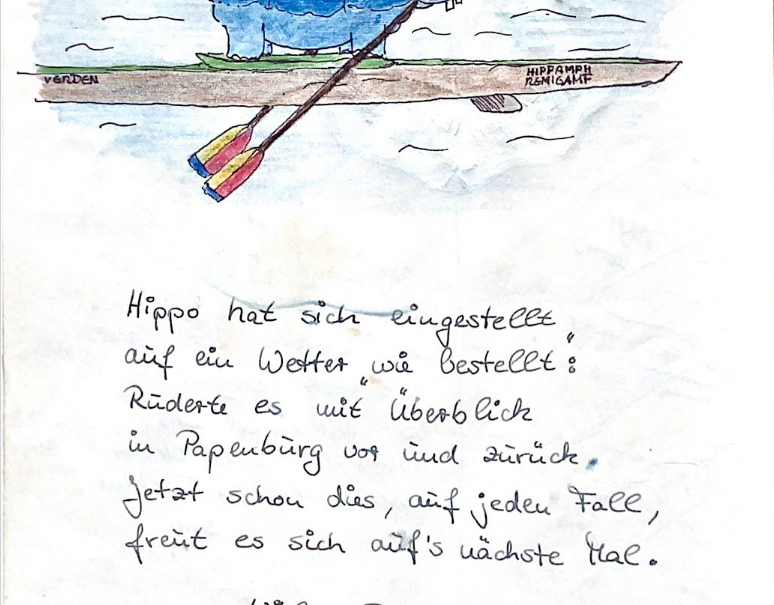 VERDEN
HIPPAMPH
REMIGAMP
Hippo hat sich eingestellt
auf ein Wetter „wie bestellt":
Ruderte es mit Überblick
in Papenburg vor und zurück.
Jetzt schon dies, auf jeden Fall,
freut es sich auf's nächste Mal.